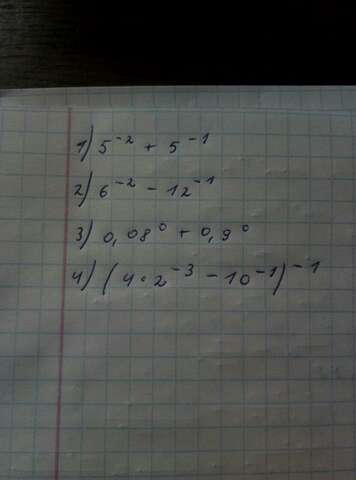 1) 5⁻² + 5⁻¹
2) 6⁻² - 12⁻¹
3) 0,08⁰ + 0,9⁰
4) (4·2⁻³ - 10⁻¹)⁻¹